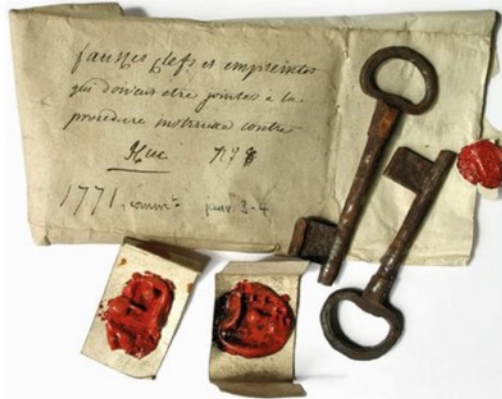 fausses clefs et empreintes
qui doivent etre jointes a la
procedure contre
Huc
1771. comm.re janv. 3-4